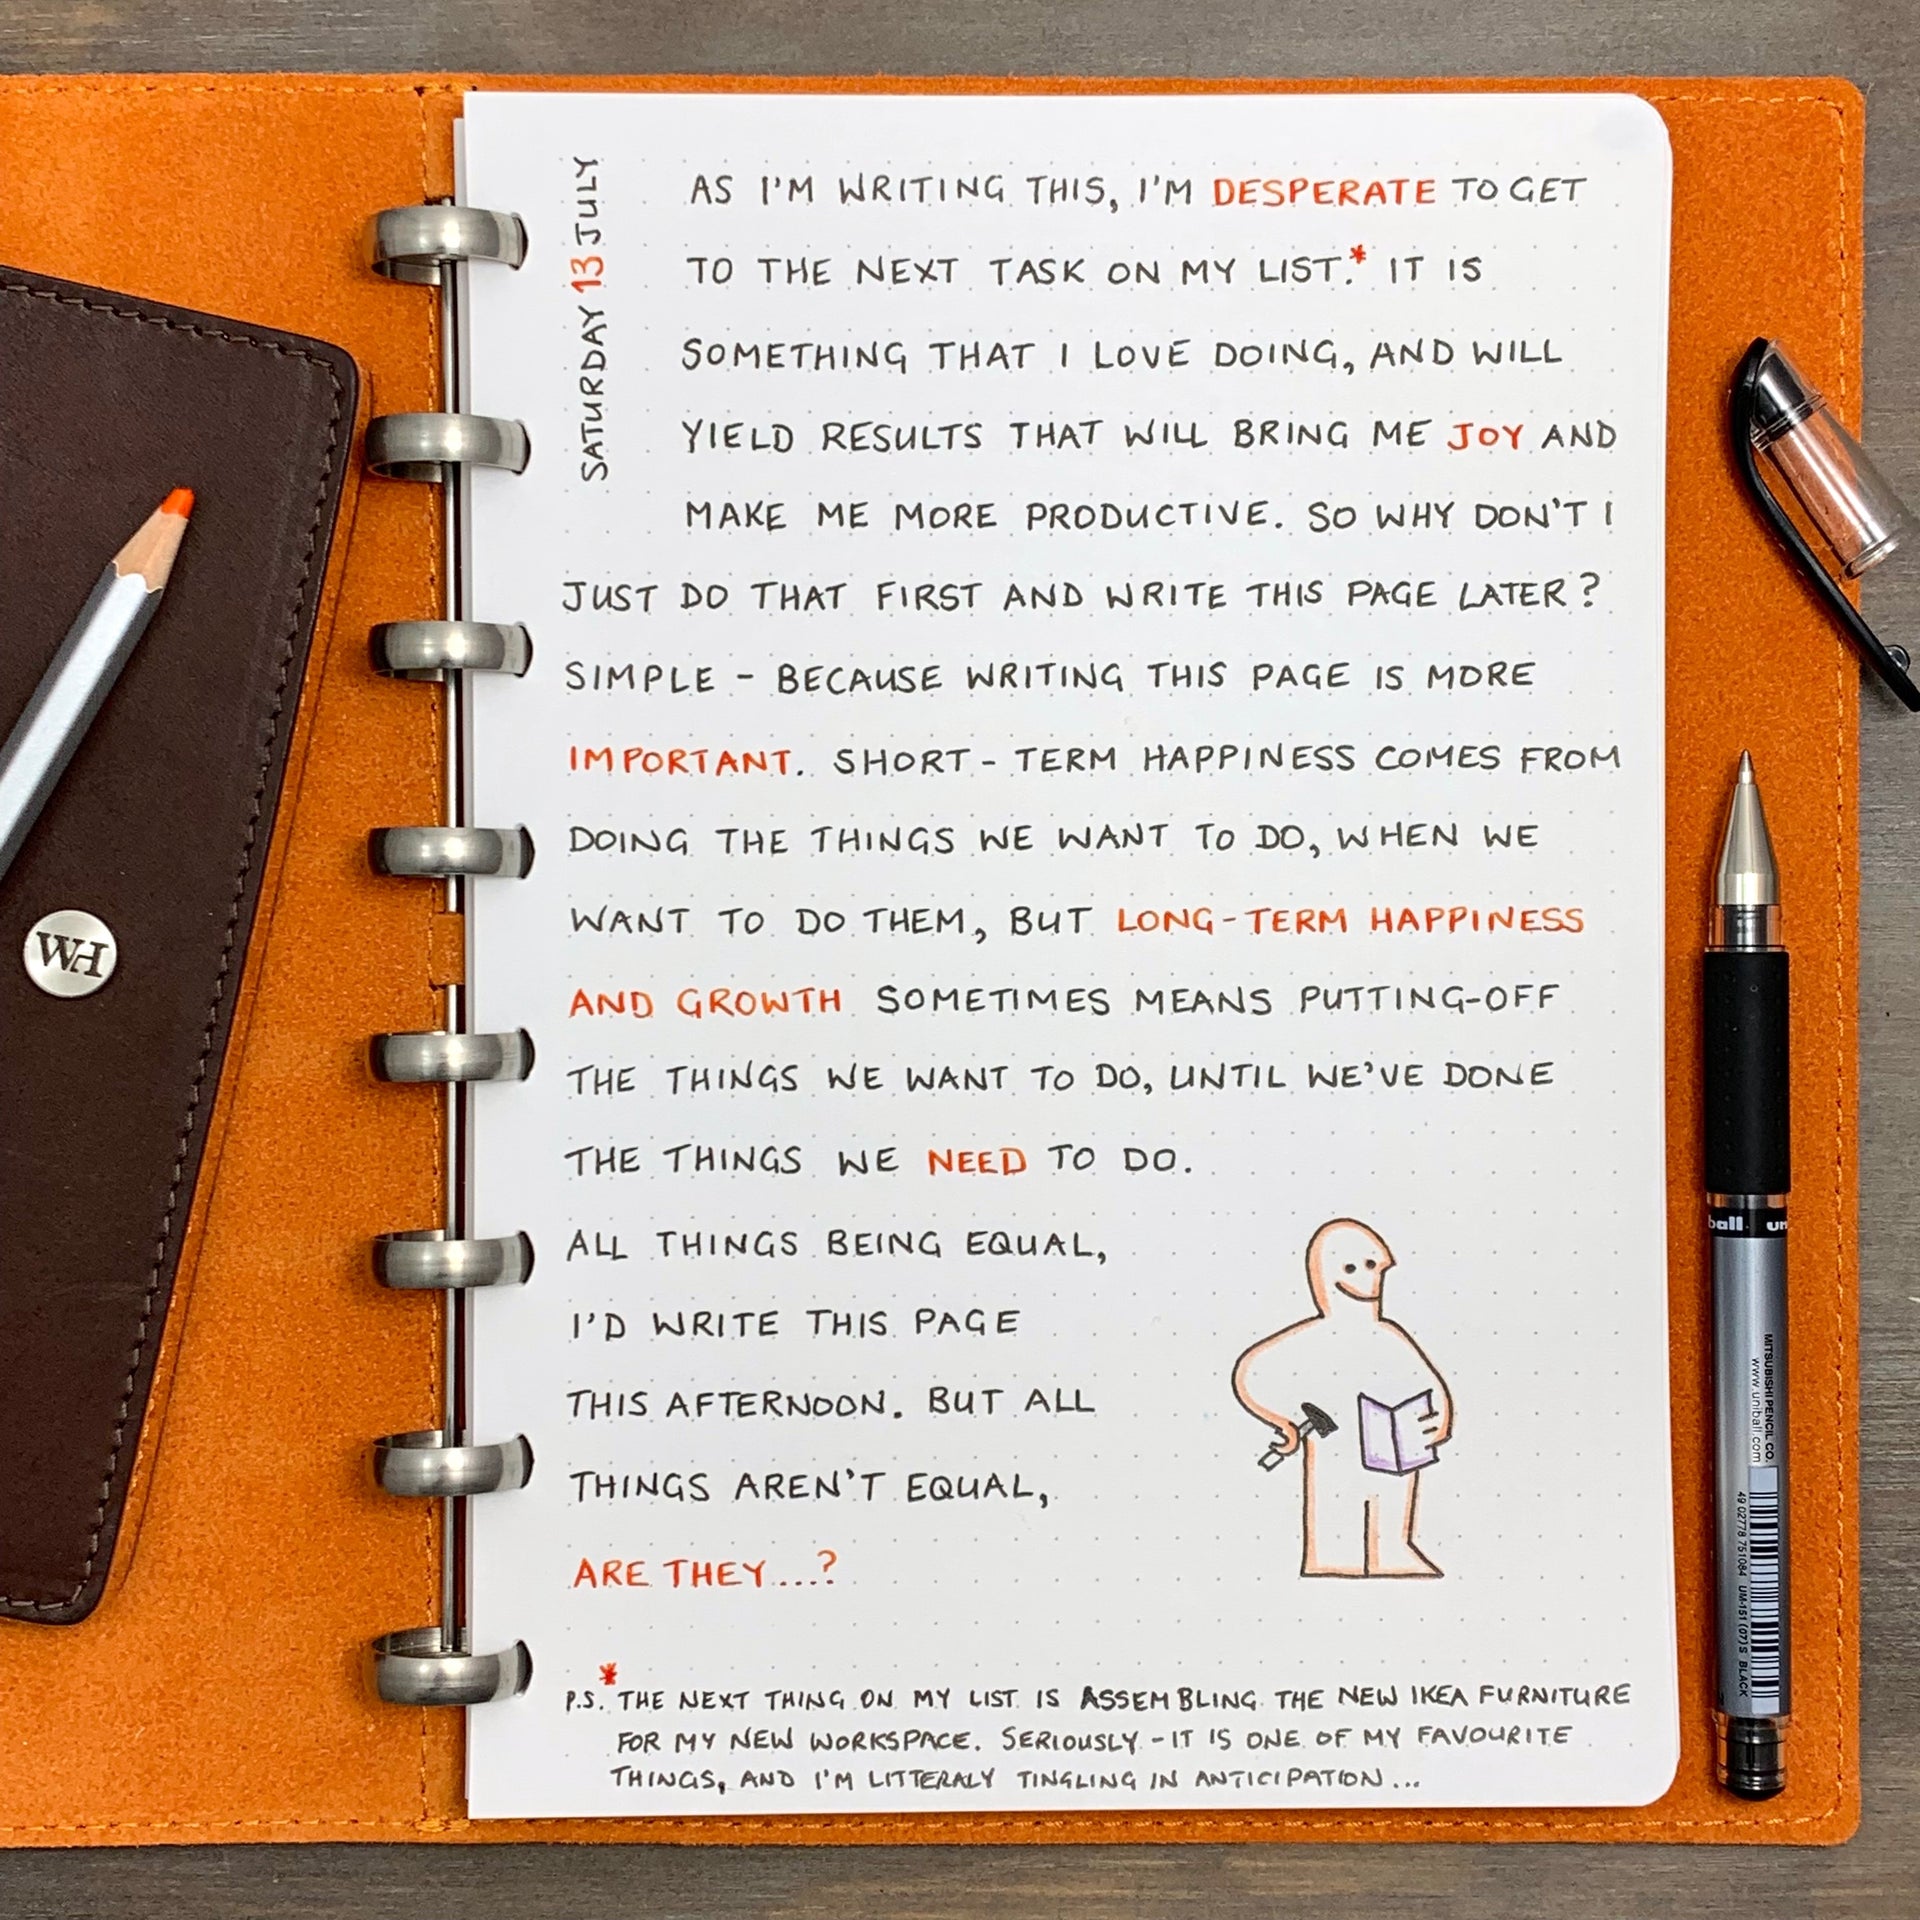 SATURDAY 13 JULY
AS I'M WRITING THIS, I'M DESPERATE TO GET
TO THE NEXT TASK ON MY LIST.* IT IS
SOMETHING THAT I LOVE DOING, AND WILL
YIELD RESULTS THAT WILL BRING ME JOY AND
MAKE ME MORE PRODUCTIVE. SO WHY DON'T I
JUST DO THAT FIRST AND WRITE THIS PAGE LATER?
SIMPLE - BECAUSE WRITING THIS PAGE IS MORE
IMPORTANT. SHORT-TERM HAPPINESS COMES FROM
DOING THE THINGS WE WANT TO DO, WHEN WE
WANT TO DO THEM, BUT LONG-TERM HAPPINESS
AND GROWTH SOMETIMES MEANS PUTTING-OFF
THE THINGS WE WANT TO DO, UNTIL WE'VE DONE
THE THINGS WE NEED TO DO.
ALL THINGS BEING EQUAL,
I'D WRITE THIS PAGE
THIS AFTERNOON. BUT ALL
THINGS AREN'T EQUAL,
ARE THEY...?
P.S.* THE NEXT THING ON MY LIST IS ASSEMBLING THE NEW IKEA FURNITURE
FOR MY NEW WORKSPACE. SERIOUSLY - IT IS ONE OF MY FAVOURITE
THINGS, AND I'M LITTERALY TINGLING IN ANTICIPATION...
WH
ball un
MITSUBISHI PENCIL CO.
www.uniball.com
49 02778 751084 UM-151 (07)S BLACK